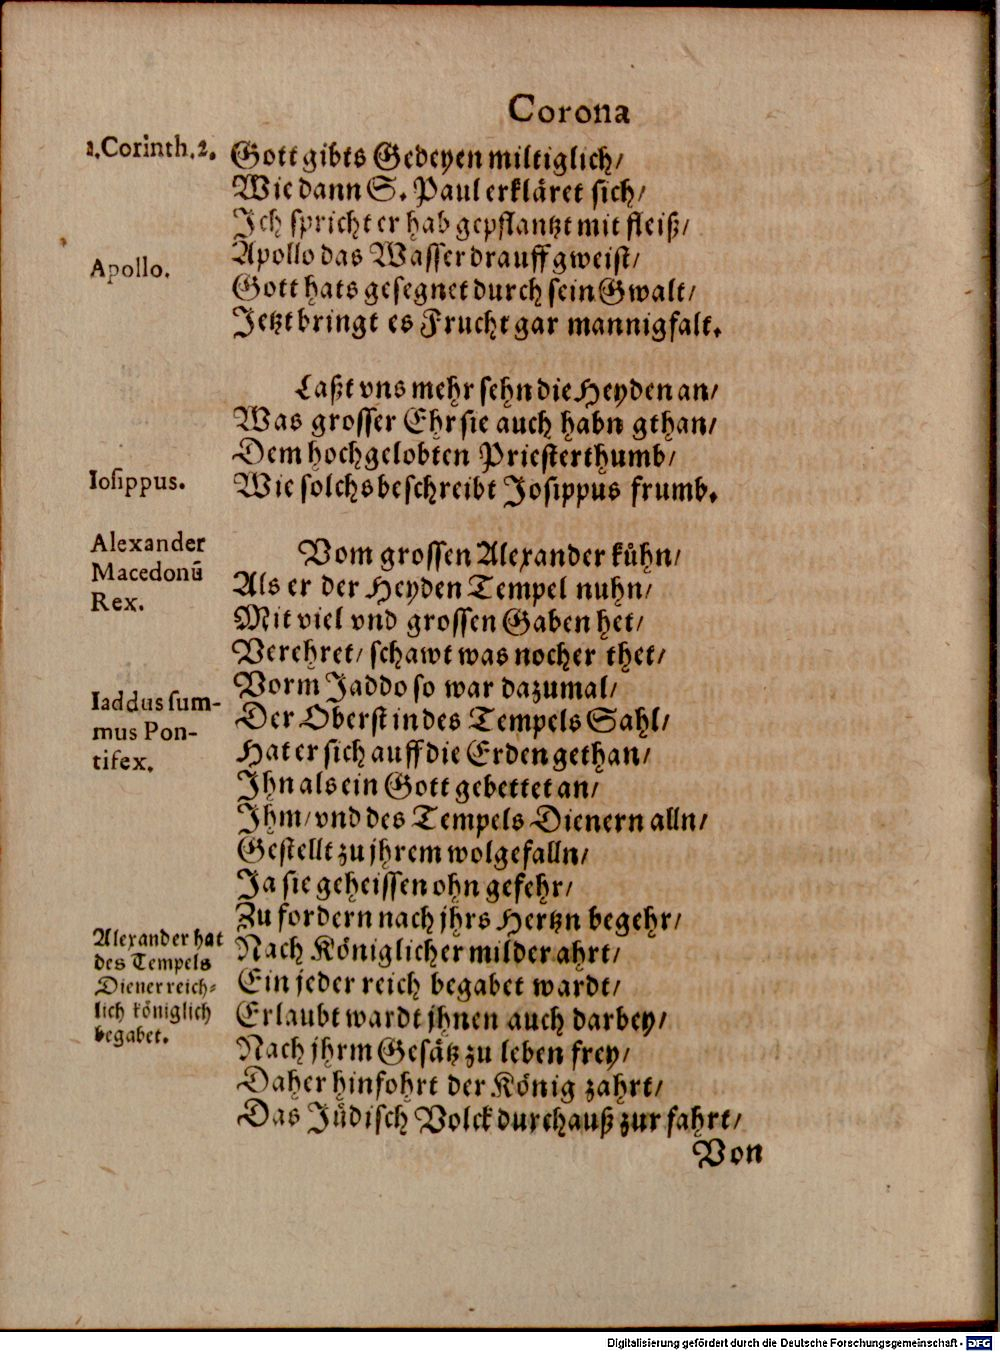 Corona
1.Corinth.2.
Gott gibts Gedeyen miltiglich/
Wie dann S. Paul erkläret sich/
Ich spricht er hab gepflantzt mit fleiß/
Apollo.
Apollo das Wasser drauff gweist/
Gott hats gesegnet durch sein Gwalt/
Jetzt bringt es Frucht gar mannigfalt.
Laßt vns mehr sehn die Heyden an/
Was grosser Ehr sie auch habn gthan/
Dem hochgelobten Priesterthumb/
Iosippus.
Wie solchs beschreibt Josippus frumb.
Alexander
Macedonū
Rex.
Vom grossen Alexander kühn/
Als er der Heyden Tempel nuhn/
Mit viel vnd grossen Gaben het/
Verehret/ schawt was nocher thet/
Iaddus sum-
mus Pon-
tifex.
Vorm Jaddo so war dazumal/
Der Oberst in des Tempels Sahl/
Hat er sich auff die Erden gethan/
Ihn als ein Gott gebettet an/
Ihm/ vnd des Tempels Dienern alln/
Gestellt zu jhrem wolgefalln/
Ja sie geheissen ohn gefehr/
Zu fordern nach jhrs Hertzn begehr/
Alexander hat
des Tempels
Diener reich-
lich königlich
begabet.
Nach Königlicher milder ahrt/
Ein jeder reich begabet wardt/
Erlaubt wardt jhnen auch darbey/
Nach jhrm Gesätz zu leben frey/
Daher hinfohrt der König zahrt/
Das Jüdisch Volck durchauß zur fahrt/
Von
Digitalisierung gefördert durch die Deutsche Forschungsgemeinschaft - DFG